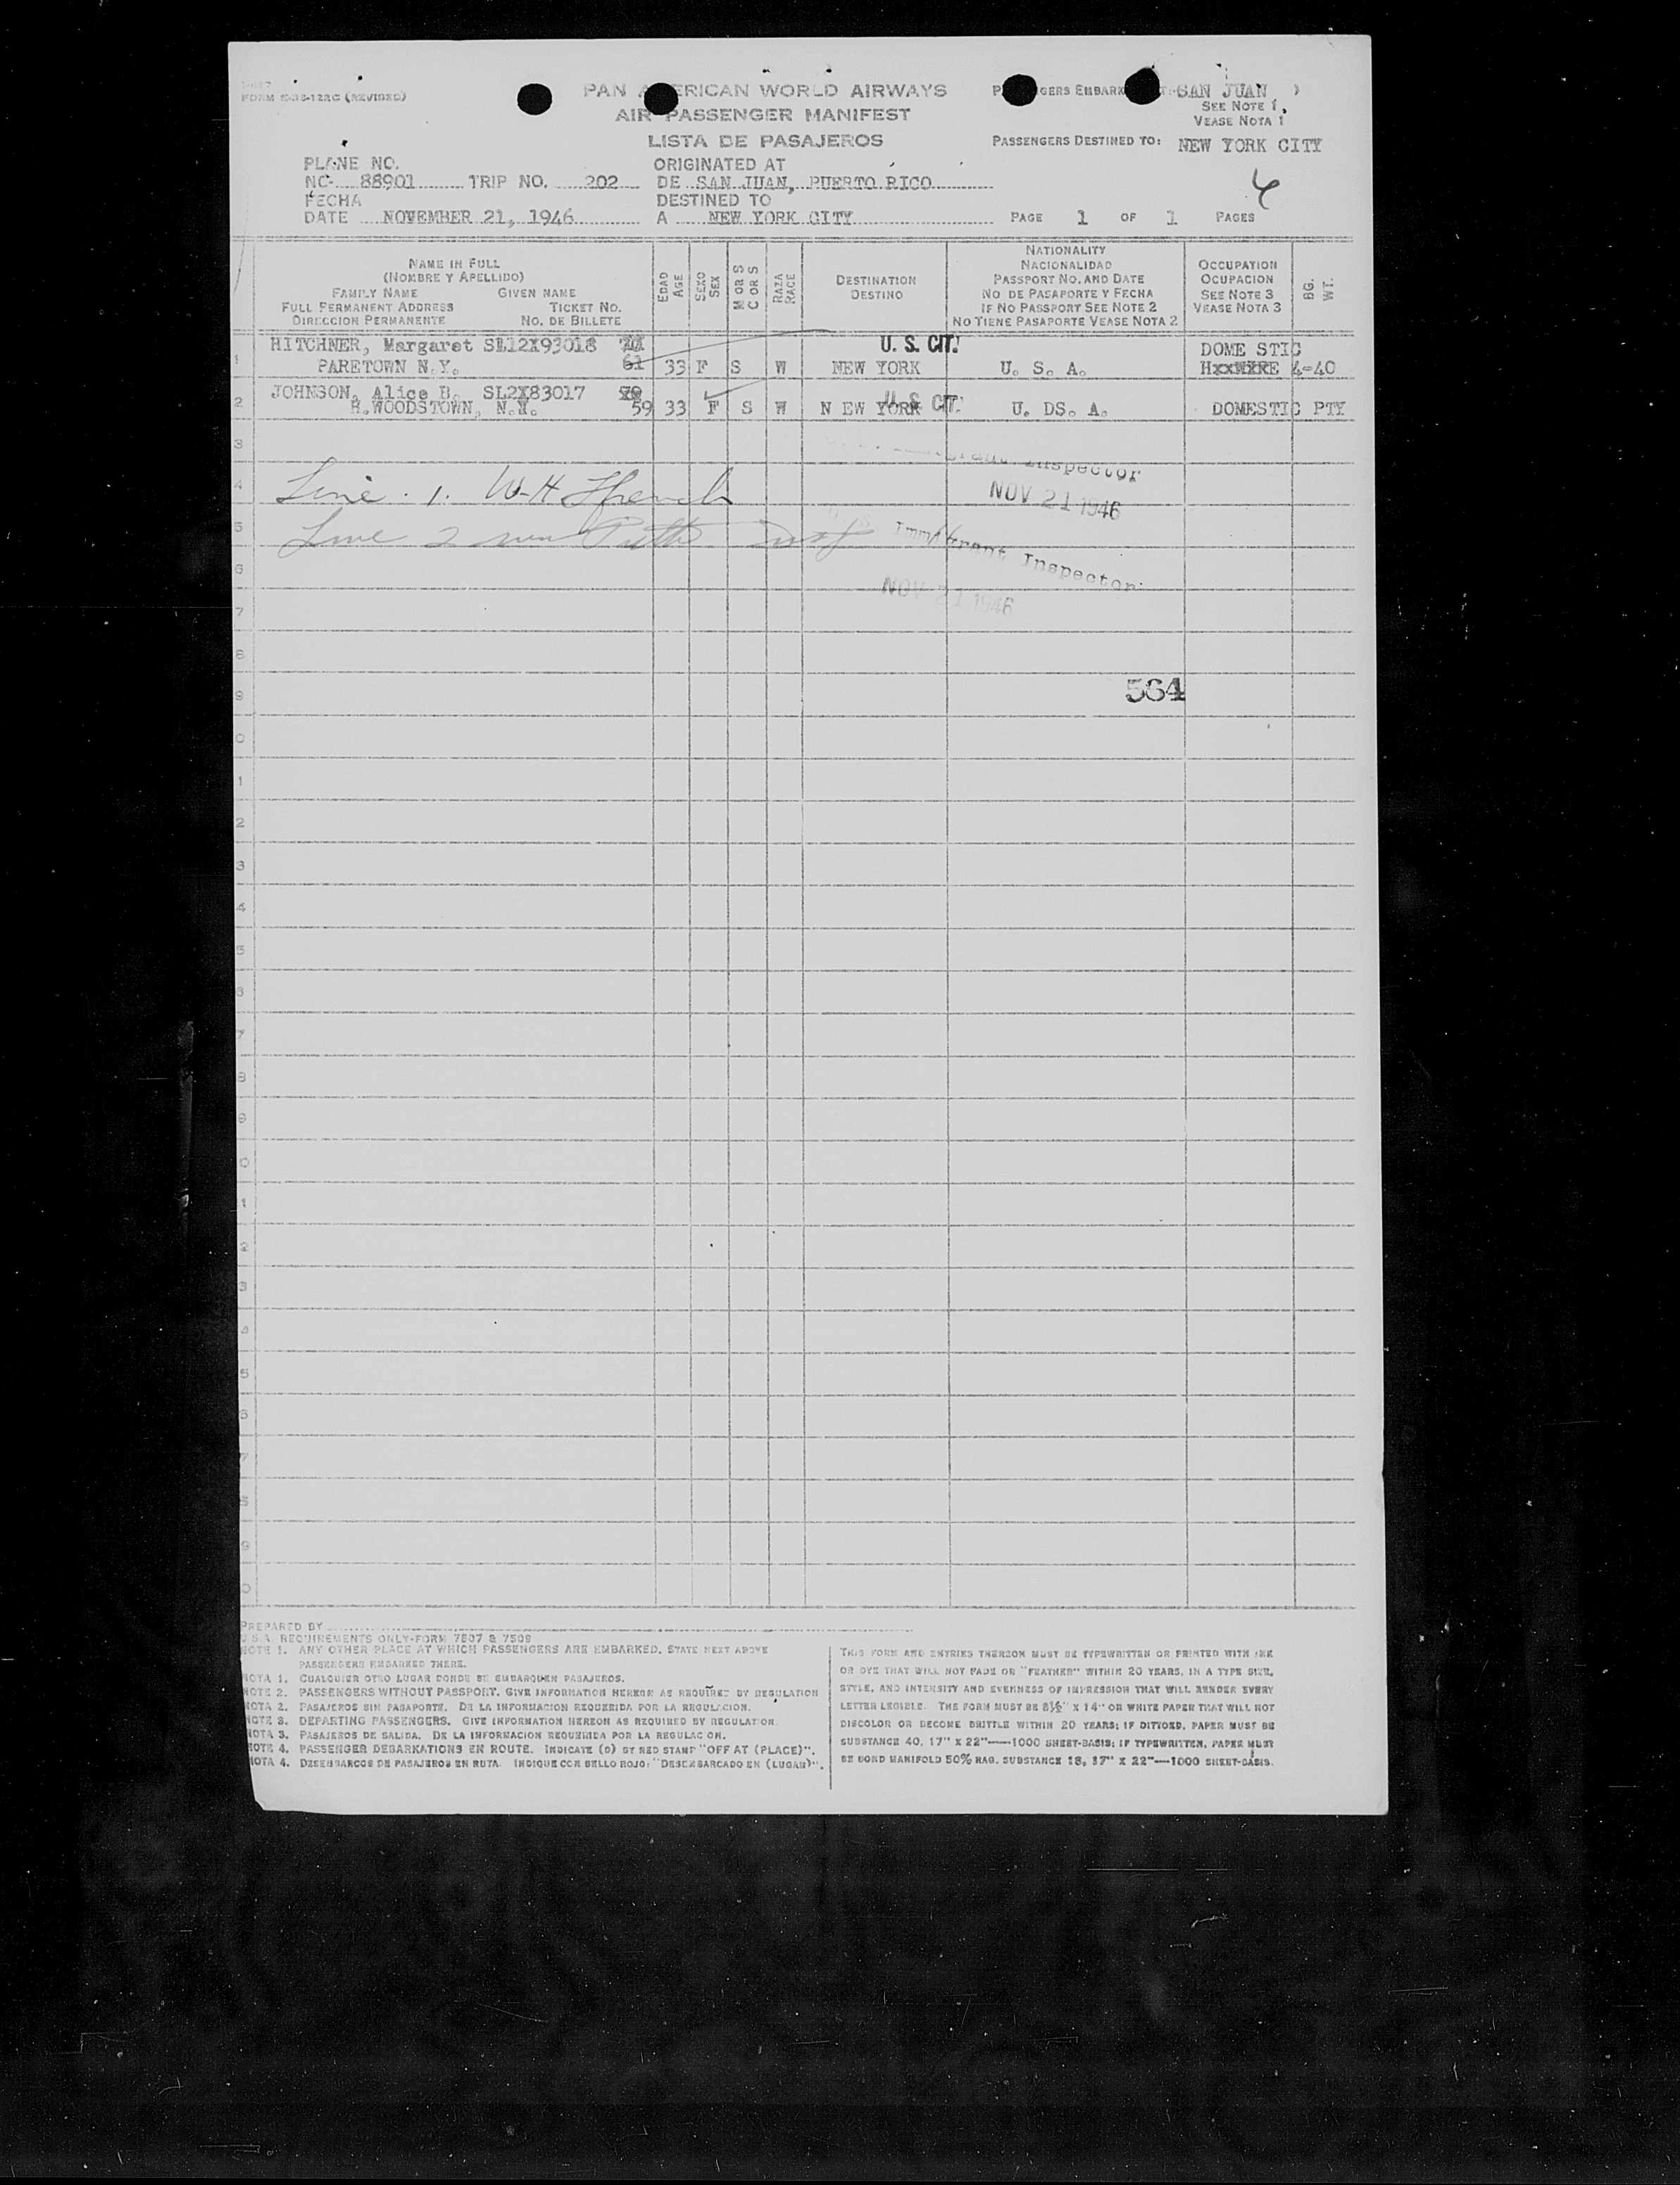 FORM (REVISED)
PAN AMERICAN WORLD AIRWAYS
AIR PASSENGER MANIFEST
LISTA DE PASAJEROS
SAN JUAN )
SEE NOTE 1
VEASE NOTA 1
PASSENGERS DESTINED TO: NEW YORK CITY
PLANE NO. ORIGINATED AT
NC- 88901 TRIP NO. 202 DE SAN JUAN, PUERTO RICO
FECHA DESTINED TO
DATE NOVEMBER 21, 1946 A NEW YORK CITY PAGE 1 OF 1 PAGES
NAME IN FULL
(NOMBRE Y APELLIDO)
FAMILY NAME GIVEN NAME
FULL PERMANENT ADDRESS TICKET NO.
DIRECCION PERMANENTE NO. DE BILLETE
EDAD
AGE
SEXO
SEX
M OR S
C OR S
RAZA
RACE
DESTINATION
DESTINO
NATIONALITY
NACIONALIDAD
PASSPORT NO. AND DATE
NO DE PASAPORTE Y FECHA
IF NO PASSPORT SEE NOTE 2
NO TIENE PASAPORTE VEASE NOTA 2
OCCUPATION
OCUPACION
SEE NOTE 3
VEASE NOTA 3
BG.
WT.
HITCHNER, Margaret SL12X93018 U. S. CIT. DOME STIC
1 PARETOWN N.Y. 61 33 F S W NEW YORK U. S. A. 4-40
JOHNSON, Alice B. SL2X83017 70 U. S. CIT.
2 R.WOODSTOWN, 59 33 F S W N EW YORK U. DS. A. DOMESTIC PTY
3
Inspector
4 Line . 1. W-H
NOV 21 1946
5 Line 2
Immigrant Inspector
6
NOV 21 1946
7
8
564
9
0
1
2
3
4
5
6
7
8
9
0
1
2
3
4
5
6
7
8
9
0
PREPARED BY
U.S.A. REQUIREMENTS ONLY-FORM 7507 & 7509
NOTE 1. ANY OTHER PLACE AT WHICH PASSENGERS ARE EMBARKED. STATE NEXT ABOVE
PASSENGERS EMBARKED THERE.
NOTA 1. CUALQUIER OTRO LUGAR DONDE SE EMBARQUEN PASAJEROS.
NOTE 2. PASSENGERS WITHOUT PASSPORT. GIVE INFORMATION HEREON AS REQUIRED BY REGULATION
NOTA 2. PASAJEROS SIN PASAPORTE. DE LA INFORMACION REQUERIDA POR LA REGULACION.
NOTE 3. DEPARTING PASSENGERS. GIVE INFORMATION HEREON AS REQUIRED BY REGULATION.
NOTA 3. PASAJEROS DE SALIDA. DE LA INFORMACION REQUERIDA POR LA REGULAC ON.
NOTE 4. PASSENGER DEBARKATIONS EN ROUTE. INDICATE (D) BY RED STAMP "OFF AT (PLACE)".
NOTA 4. DESEMBARCOS DE PASAJEROS EN RUTA. INDIQUE CON SELLO ROJO: "DESEMBARCADO EN (LUGAR)".
THIS FORM AND ENTRIES THEREON MUST BE TYPEWRITTEN OR PRINTED WITH INK
OR DYE THAT WILL NOT FADE OR "FEATHER" WITHIN 20 YEARS, IN A TYPE SIZE,
STYLE, AND INTENSITY AND EVENNESS OF IMPRESSION THAT WILL RENDER EVERY
LETTER LEGIBLE. THE FORM MUST BE 8½" X 14" OR WHITE PAPER THAT WILL NOT
DISCOLOR OR BECOME BRITTLE WITHIN 20 YEARS; IF DITTOED, PAPER MUST BE
SUBSTANCE 40, 17" X 22"—1000 SHEET-BASIS; IF TYPEWRITTEN, PAPER MUST
BE BOND MANIFOLD 50% RAG, SUBSTANCE 18, 17" X 22"—1000 SHEET-BASIS.